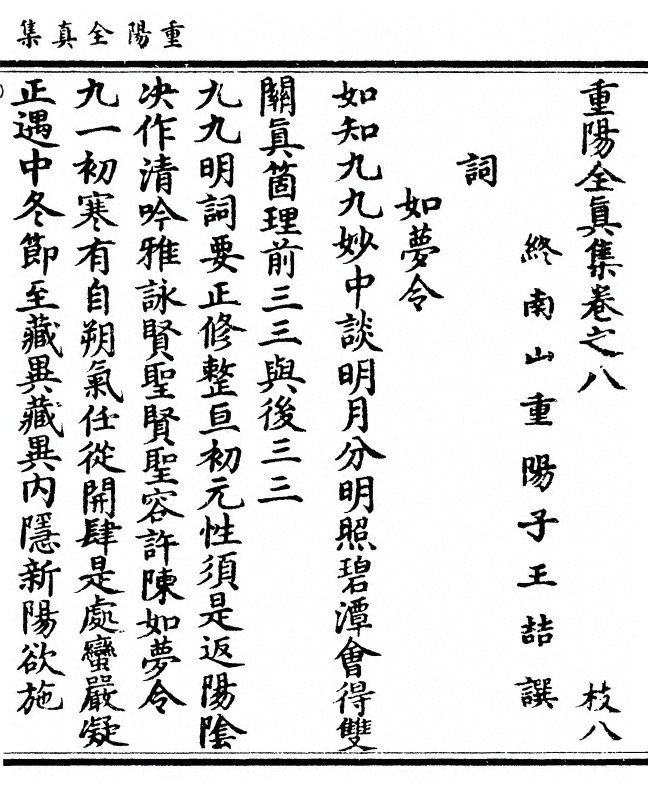 重陽全真集
重陽全眞集卷之八
枝八
終南山重陽子王喆譔
詞
如夢令
如知九九妙中談明月分明照碧潭會得雙
關眞箇理前三三與後三三
九九明詞要正修整亘初元性須是返陽陰
决作清吟雅詠賢聖賢聖容許陳如夢令
九一初寒有自朔氣任從開肆是處蠻嚴凝
正遇中冬節至藏異藏異内隱新陽欲施